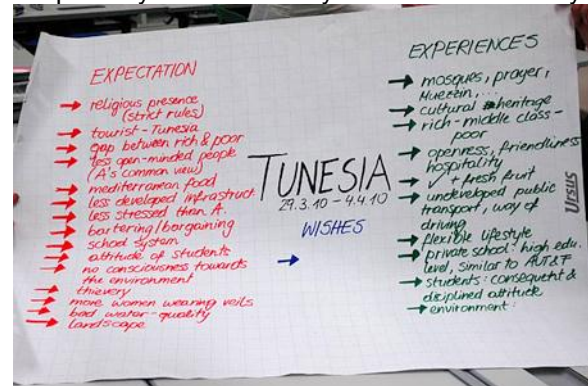 EXPECTATION
religious presence
(strict rules)
tourist - Tunesia
gap between rich & poor
less open-minded people
(A's common view)
mediterranean food
less developed infrastruct.
less stressed than A.
bartering/bargaining
school system
attitude of students
no consciousness towards
the environment
thievery
more women wearing veils
bad water-quality
landscape
TUNESIA
29.3.10 - 4.4.10
WISHES
EXPERIENCES
mosques, prayer,
Muezzin, ...
cultural heritage
rich - middle class -
poor
openness, friendliness
hospitality
✓ + fresh fruit
undeveloped public
transport, way of
driving
flexible lifestyle
private school: high edu.
level, similar to AUT & F
students: consequent &
disciplined attitude
environment:
Ursus